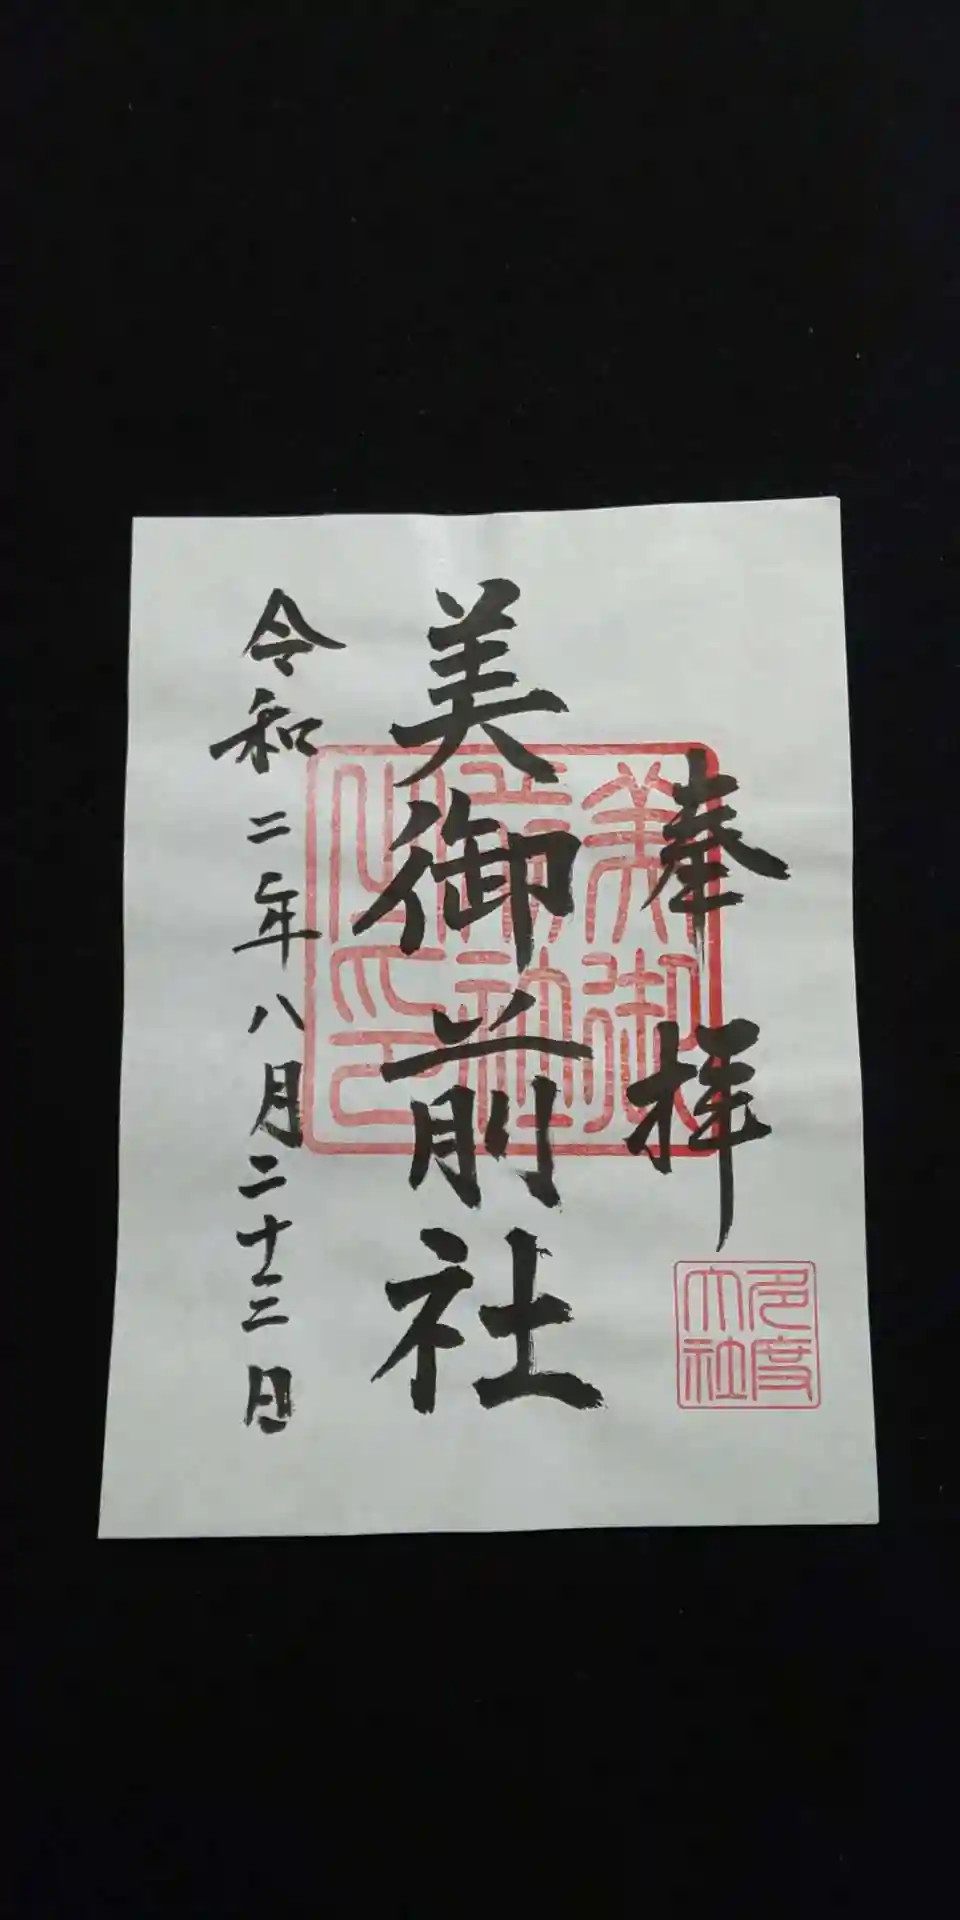 奉拝
美御前社
令和二年八月二十三日
美御
前社
之印
多度
大社